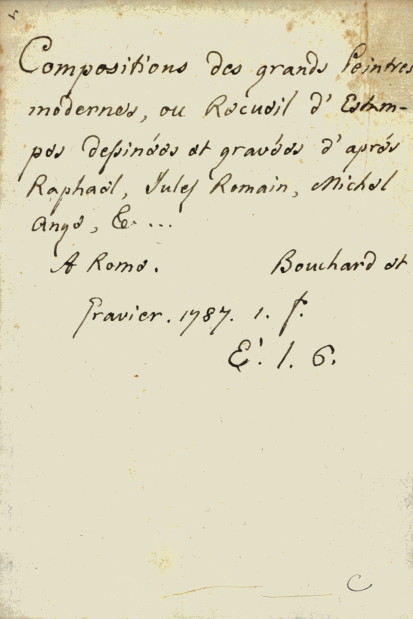 Compositions des grands Peintres
modernes, ou Recueil d'Estam-
pes deßinées et gravées d'après
Raphaël, Jules Romain, Michel
Ange, &. ...
A Rome. Bouchard et
Gravier. 1787. 1. f.
E'. 1. 6.
C